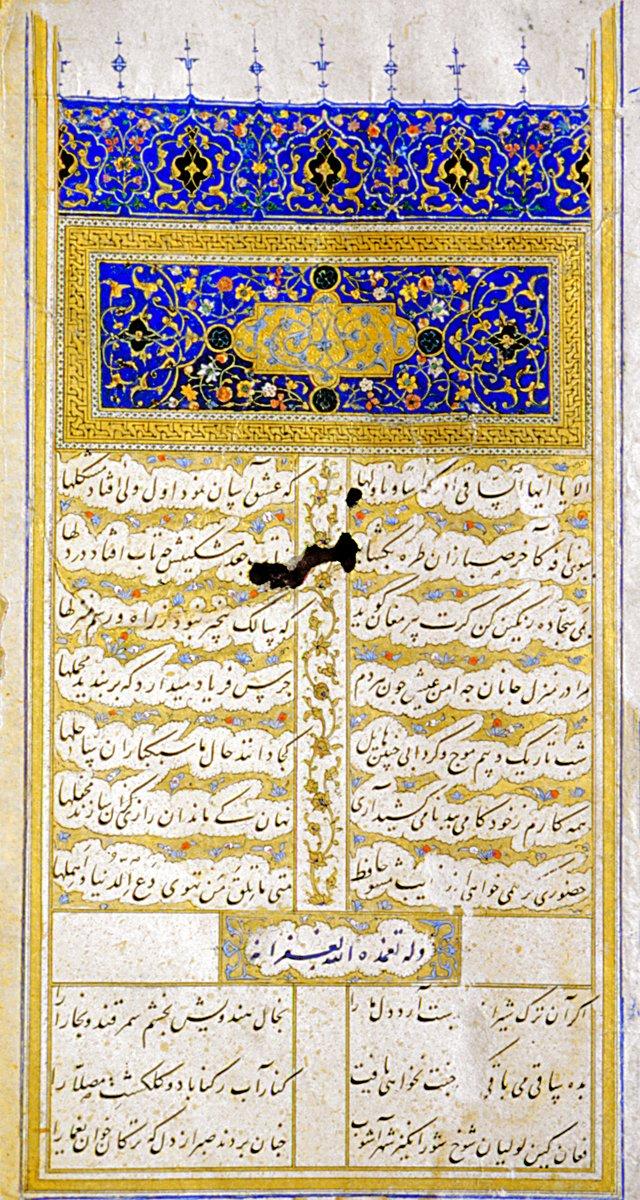 الا یا ایها الساقی ادر کاسا و ناولها که عشق آسان نمود اول ولی افتاد مشکلها
ببوی نافه کاخر صبا زان طره بگشا جعد مشکینش چه تاب افتاد در دلها
بمی سجاده رنگین کن گرت پیر مغان گوید که سالک بیخبر نبود ز راه و رسم منزلها
مرا در منزل جانان چه امن عیش چون هر دم جرس فریاد میدارد که بربندید محملها
شب تاریک و بیم موج و گردابی چنین هایل کجا دانند حال ما سبکباران ساحلها
همه کارم ز خود کامی ببدنامی کشید آری نهان کی ماند آن رازی کزان سازند محفلها
حضوری گر همی خواهی مشو حافظ متی ما تلق من تهوی دع الدنیا و اهملها
وله تغمده الله بغفرانه
اگر آن ترک شیرا بدست آرد دل ما را بخال هندویش بخشم سمرقند و بخارا را
بده ساقی می باقی جنت نخواهی یافت کنار آب رکناباد و گلگشت مصلا را
فغان کین لولیان شوخ شورانگیز شهرآشوب چنان بردند صبر از دل که ترکان خوان یغما را